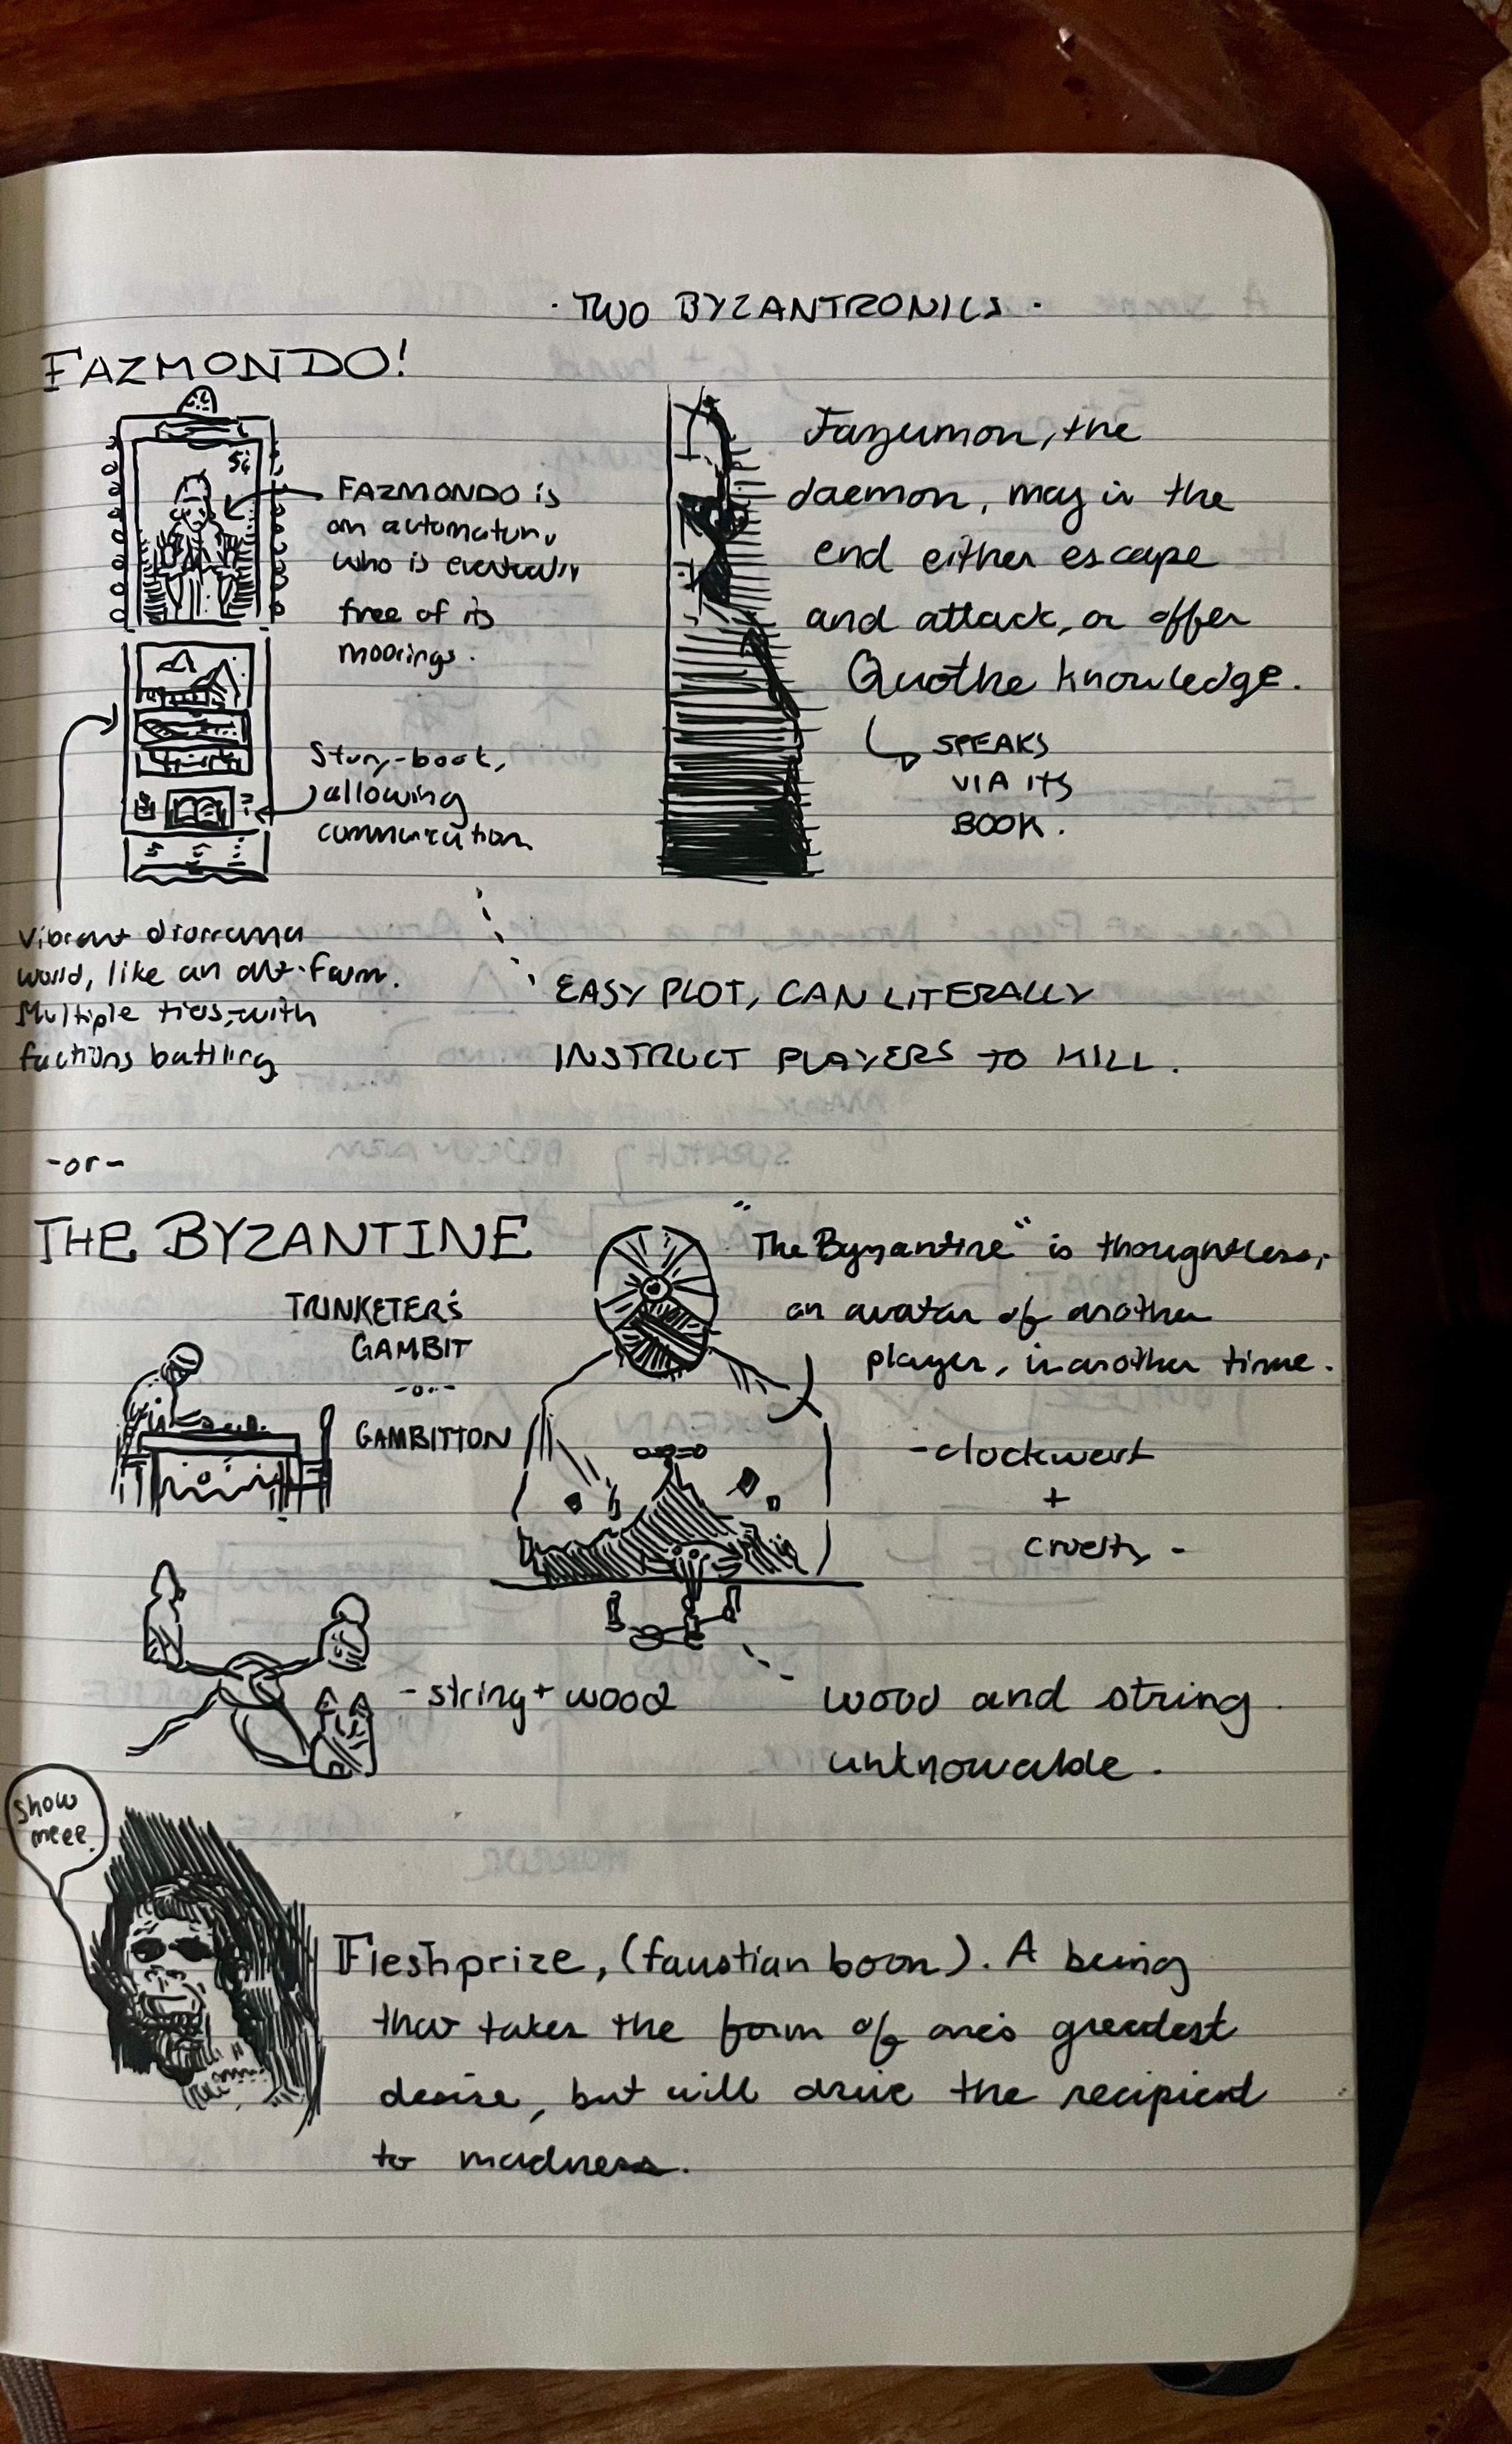 · TWO BYZANTRONICS ·
FAZMONDO!
5¢
FAZMONDO is
an automaton,
who is eventually
free of its
moorings.
Story-book,
allowing
communication
Vibrant diorrama
world, like an ant-farm.
Multiple tiers, with
factions battling
Fazumon, the
daemon, may in the
end either escape
and attack, or offer
Quothe knowledge.
SPEAKS
VIA ITS
BOOK.
EASY PLOT, CAN LITERALLY
INSTRUCT PLAYERS TO KILL.
-or-
THE BYZANTINE
TRINKETER'S
GAMBIT
-or-
GAMBITTON
"The Byzantine" is thoughtless,
an avatar of another
player, in another time.
-clockwork
+
cruelty -
- string + wood
wood and string
unknowable.
Show
meee.
Fleshprize, (faustian boon). A being
that takes the form of one's greatest
desire, but will drive the recipient
to madness.